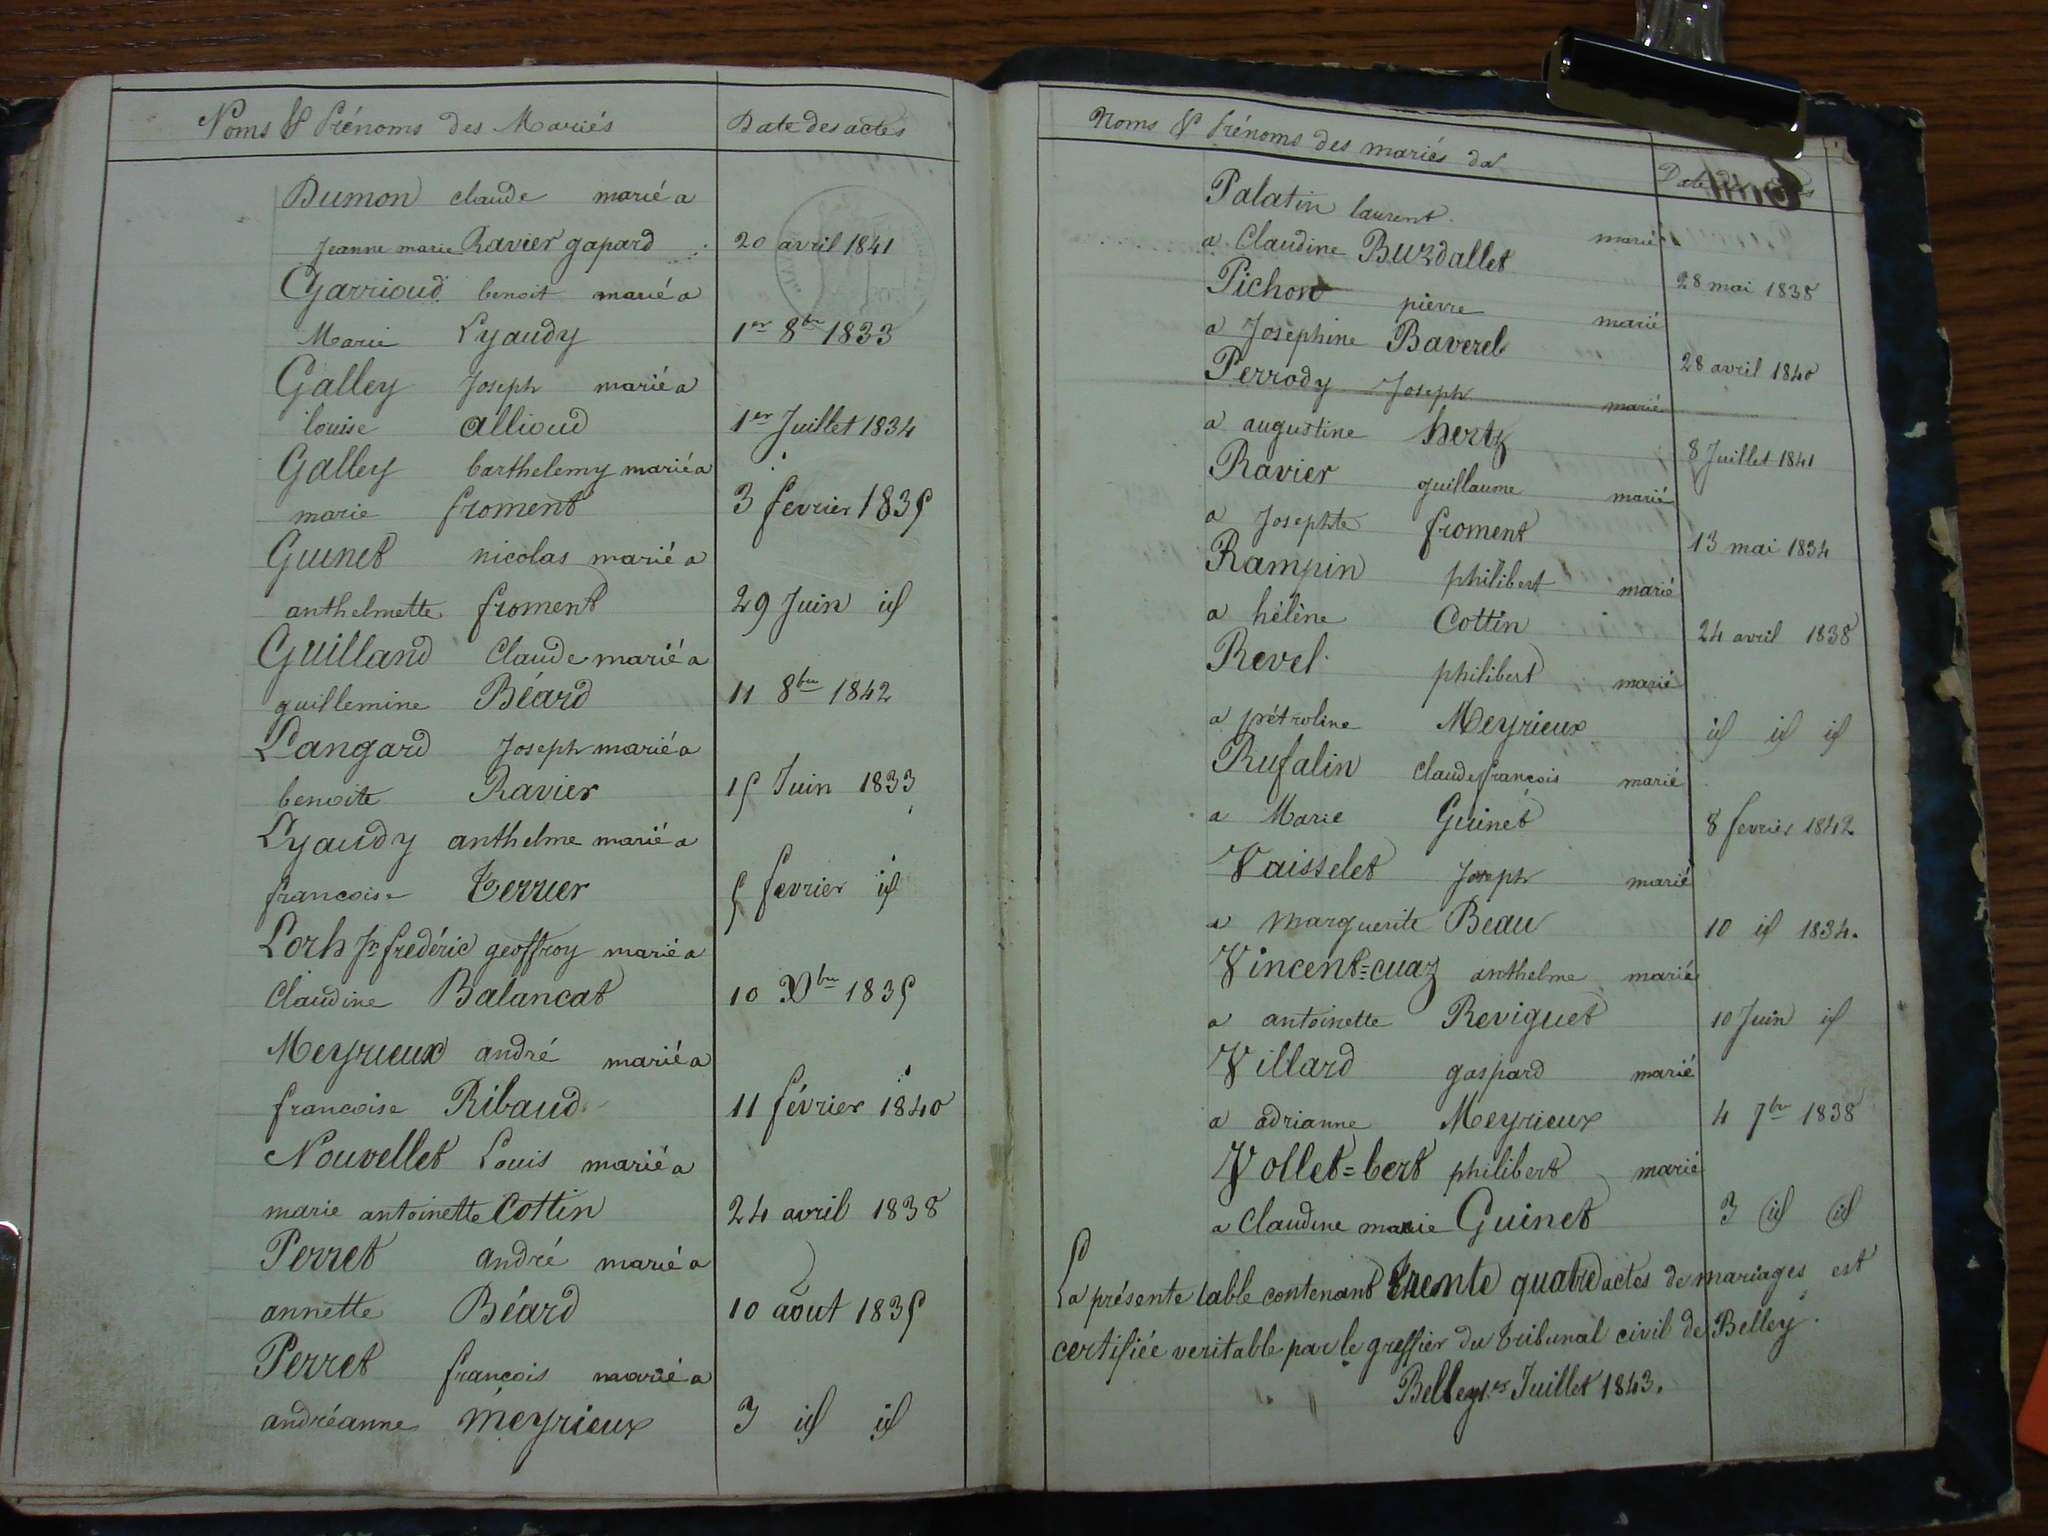 Noms & Prénoms des Mariés Date des actes
Dumon claude marié a
Jeanne marie Ravier gapard 20 avril 1841
Garrioud benoit marié a
Marie Lyaudy 1er 8bre 1833
Galley Joseph marié a
louise allioud 1er Juillet 1834
Galley barthelemy marié a
marie froment 3 fevrier 1835
Guinet nicolas marié a
anthelmette froment 29 Juin id
Guilland Claude marié a
guillemine Béard 11 8bre 1842
Langard Joseph marié a
benoite Ravier 15 Juin 1833
Lyaudy anthelme marié a
francoise Terrier 5 fevrier id
Lorh Jn frédéric geoffroy marié a
Claudine Balancat 10 Xbre 1835
Meyrieux andré marié a
francoise Ribaud 11 février 1840
Nouvellet Louis marié a
marie antoinette Cottin 24 avril 1838
Perret andré marié a
annette Béard 10 aout 1835
Perret françois marié a
andréanne meyrieux 3 id id
Noms & Prénoms des mariés Date
Palatin laurent marié
a Claudine Burdallet 28 mai 1838
Pichon pierre marié
a Josephine Baverel 28 avril 1840
Perrody Joseph marié
a augustine hertz 8 Juillet 1841
Ravier guillaume marié
a Josephte froment 13 mai 1834
Rampin philibert marié
a hélène Cottin 24 avril 1838
Revel philibert marié
a pétroline Meyrieux id id id
Rufalin Claude françois marié
a Marie Guinet 8 fevrier 1842
Vaisselet Joseph marié
a marguerite Beau 10 id 1834.
Vincent=cuaz anthelme marié
a antoinette Reviguet 10 Juin id
Villard gaspard marié
a adrianne Meyrieux 4 7bre 1838
Vollet=bert philibert marié
a Claudine marie Guinet 3 id id
La présente table contenant trente quatre actes de mariages est
certifiée veritable par le greffier du tribunal civil de Belley.
Belley 1er Juillet 1843.